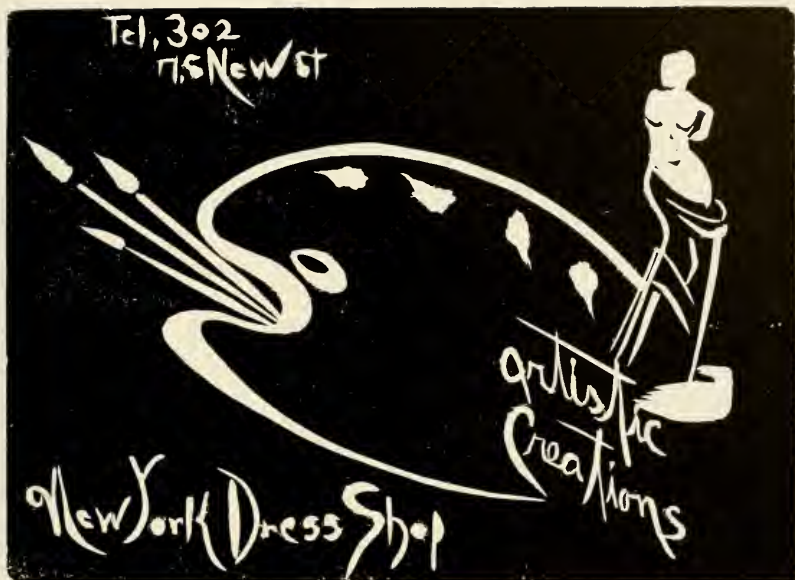 Tel, 302
75 New St
artistic
Creations
New York Dress Shop